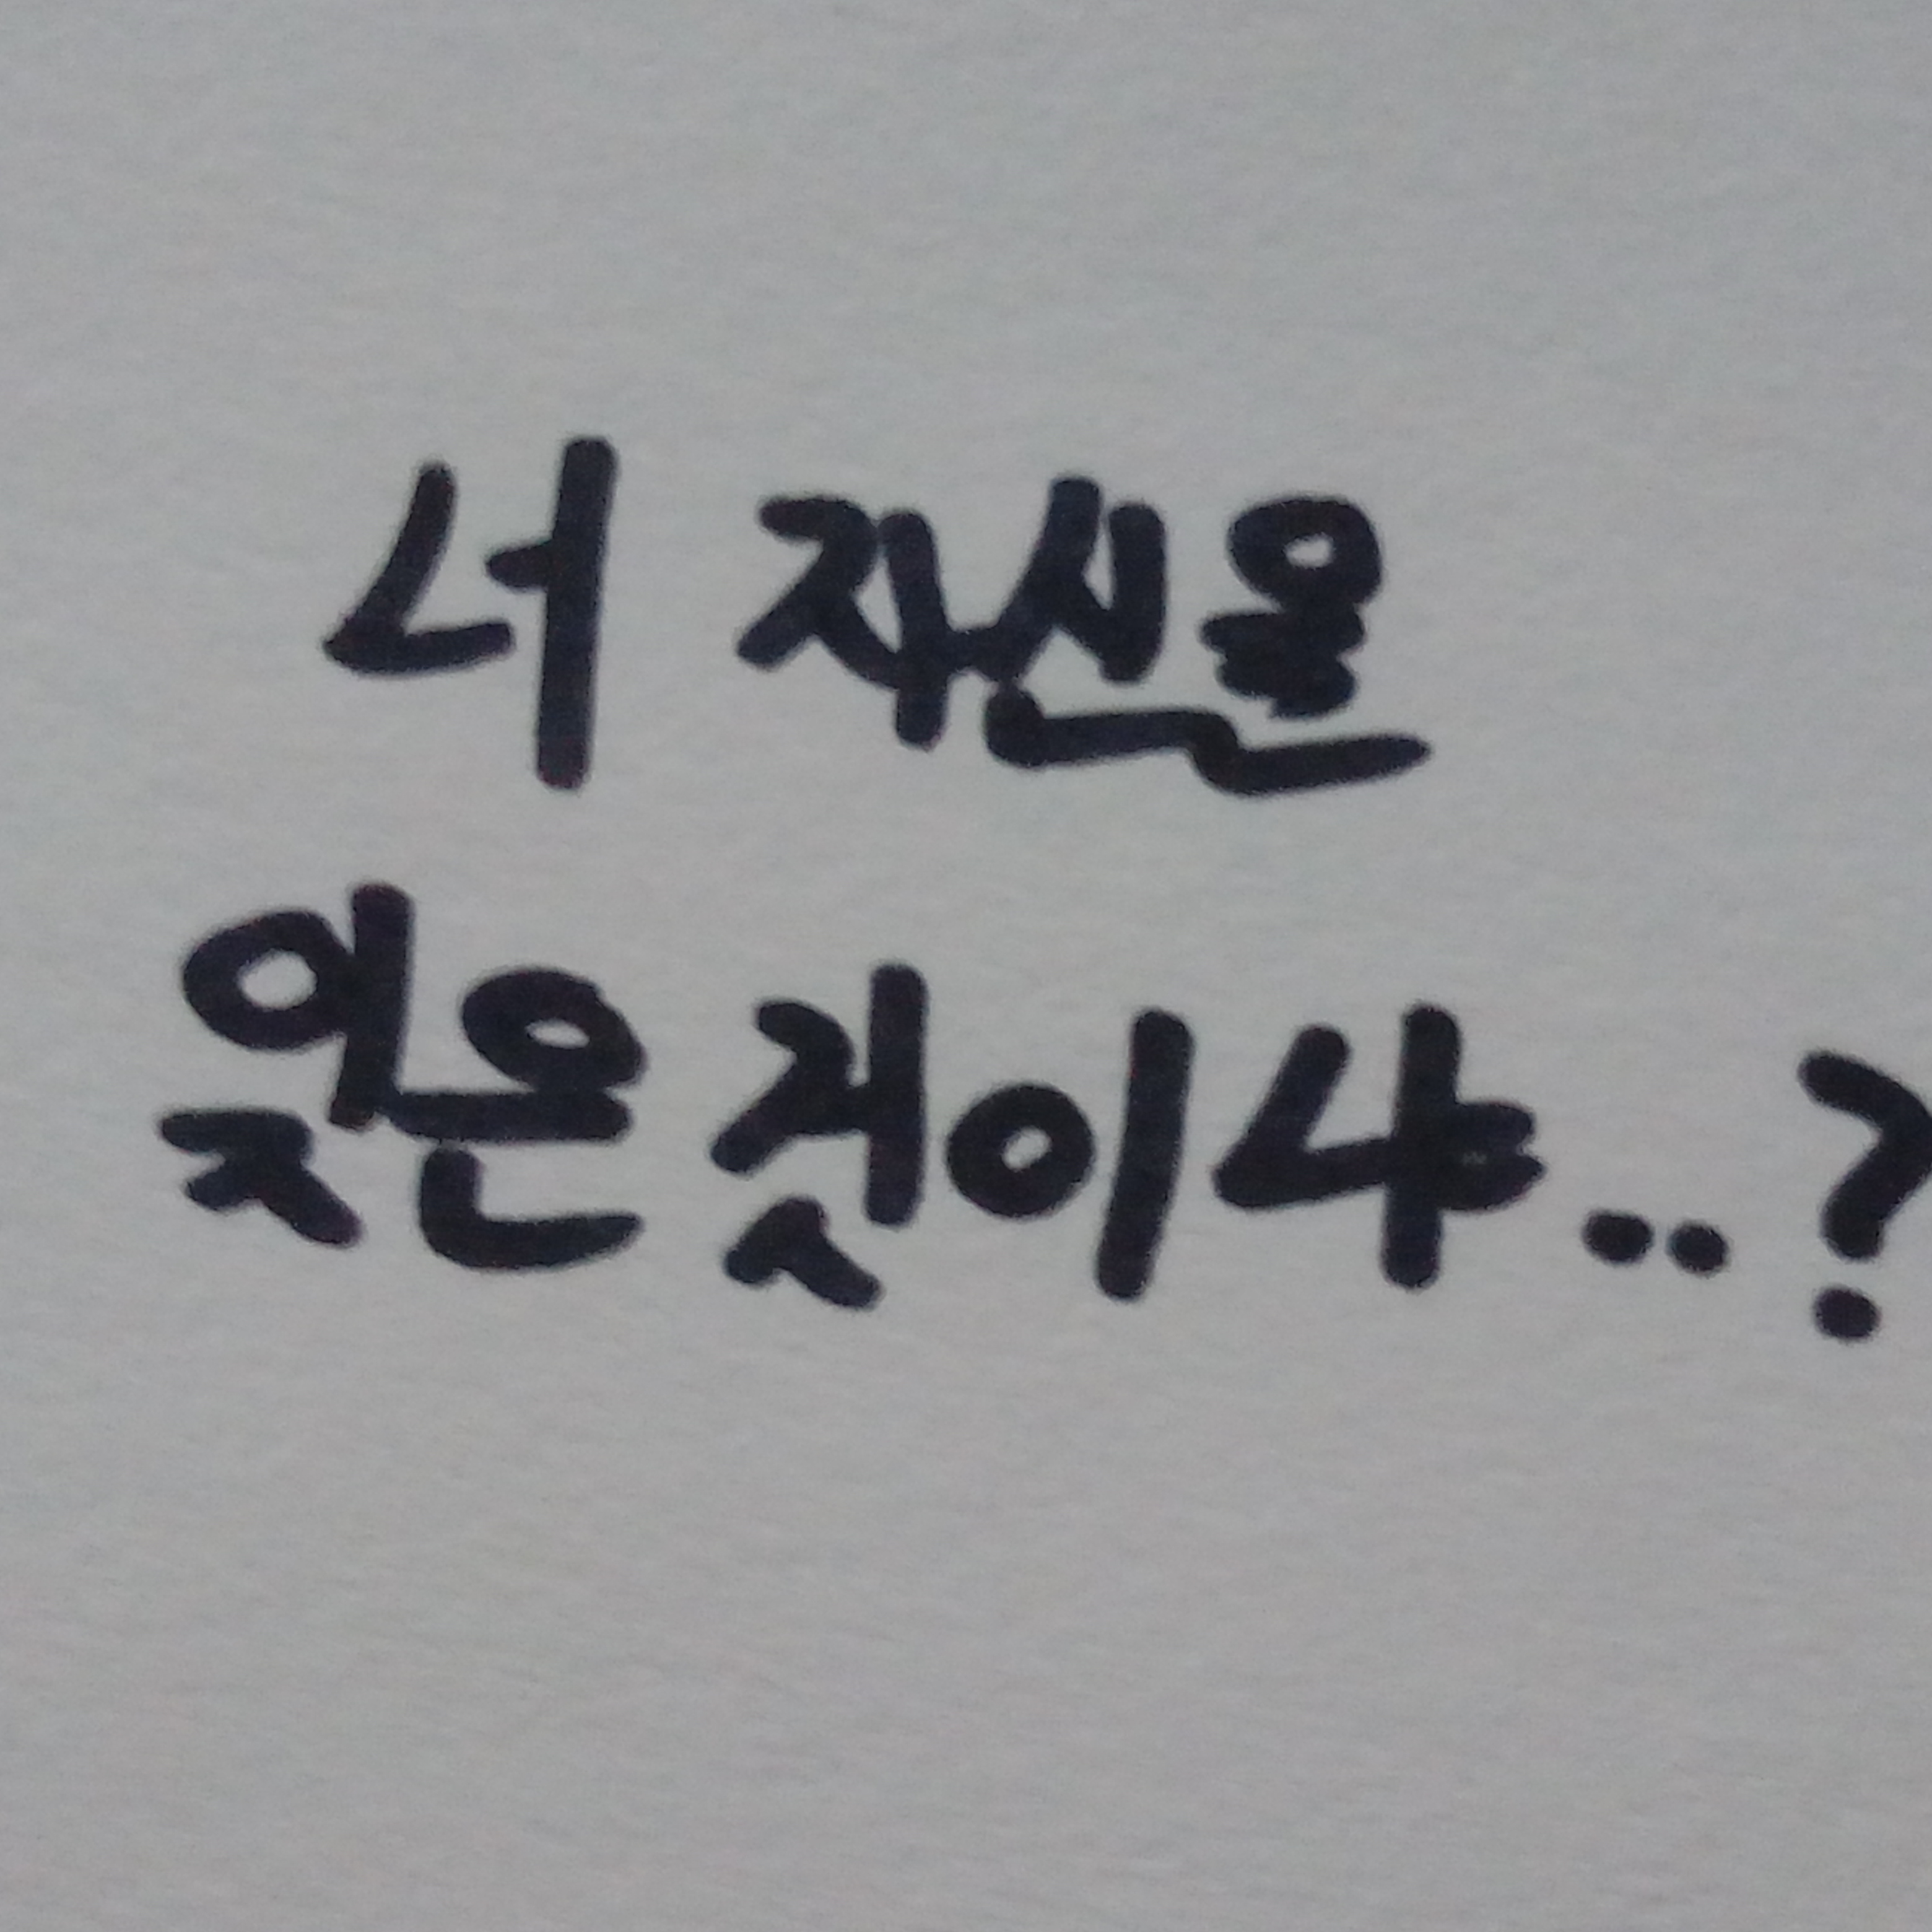 너 자신을
잊은 것이냐..?